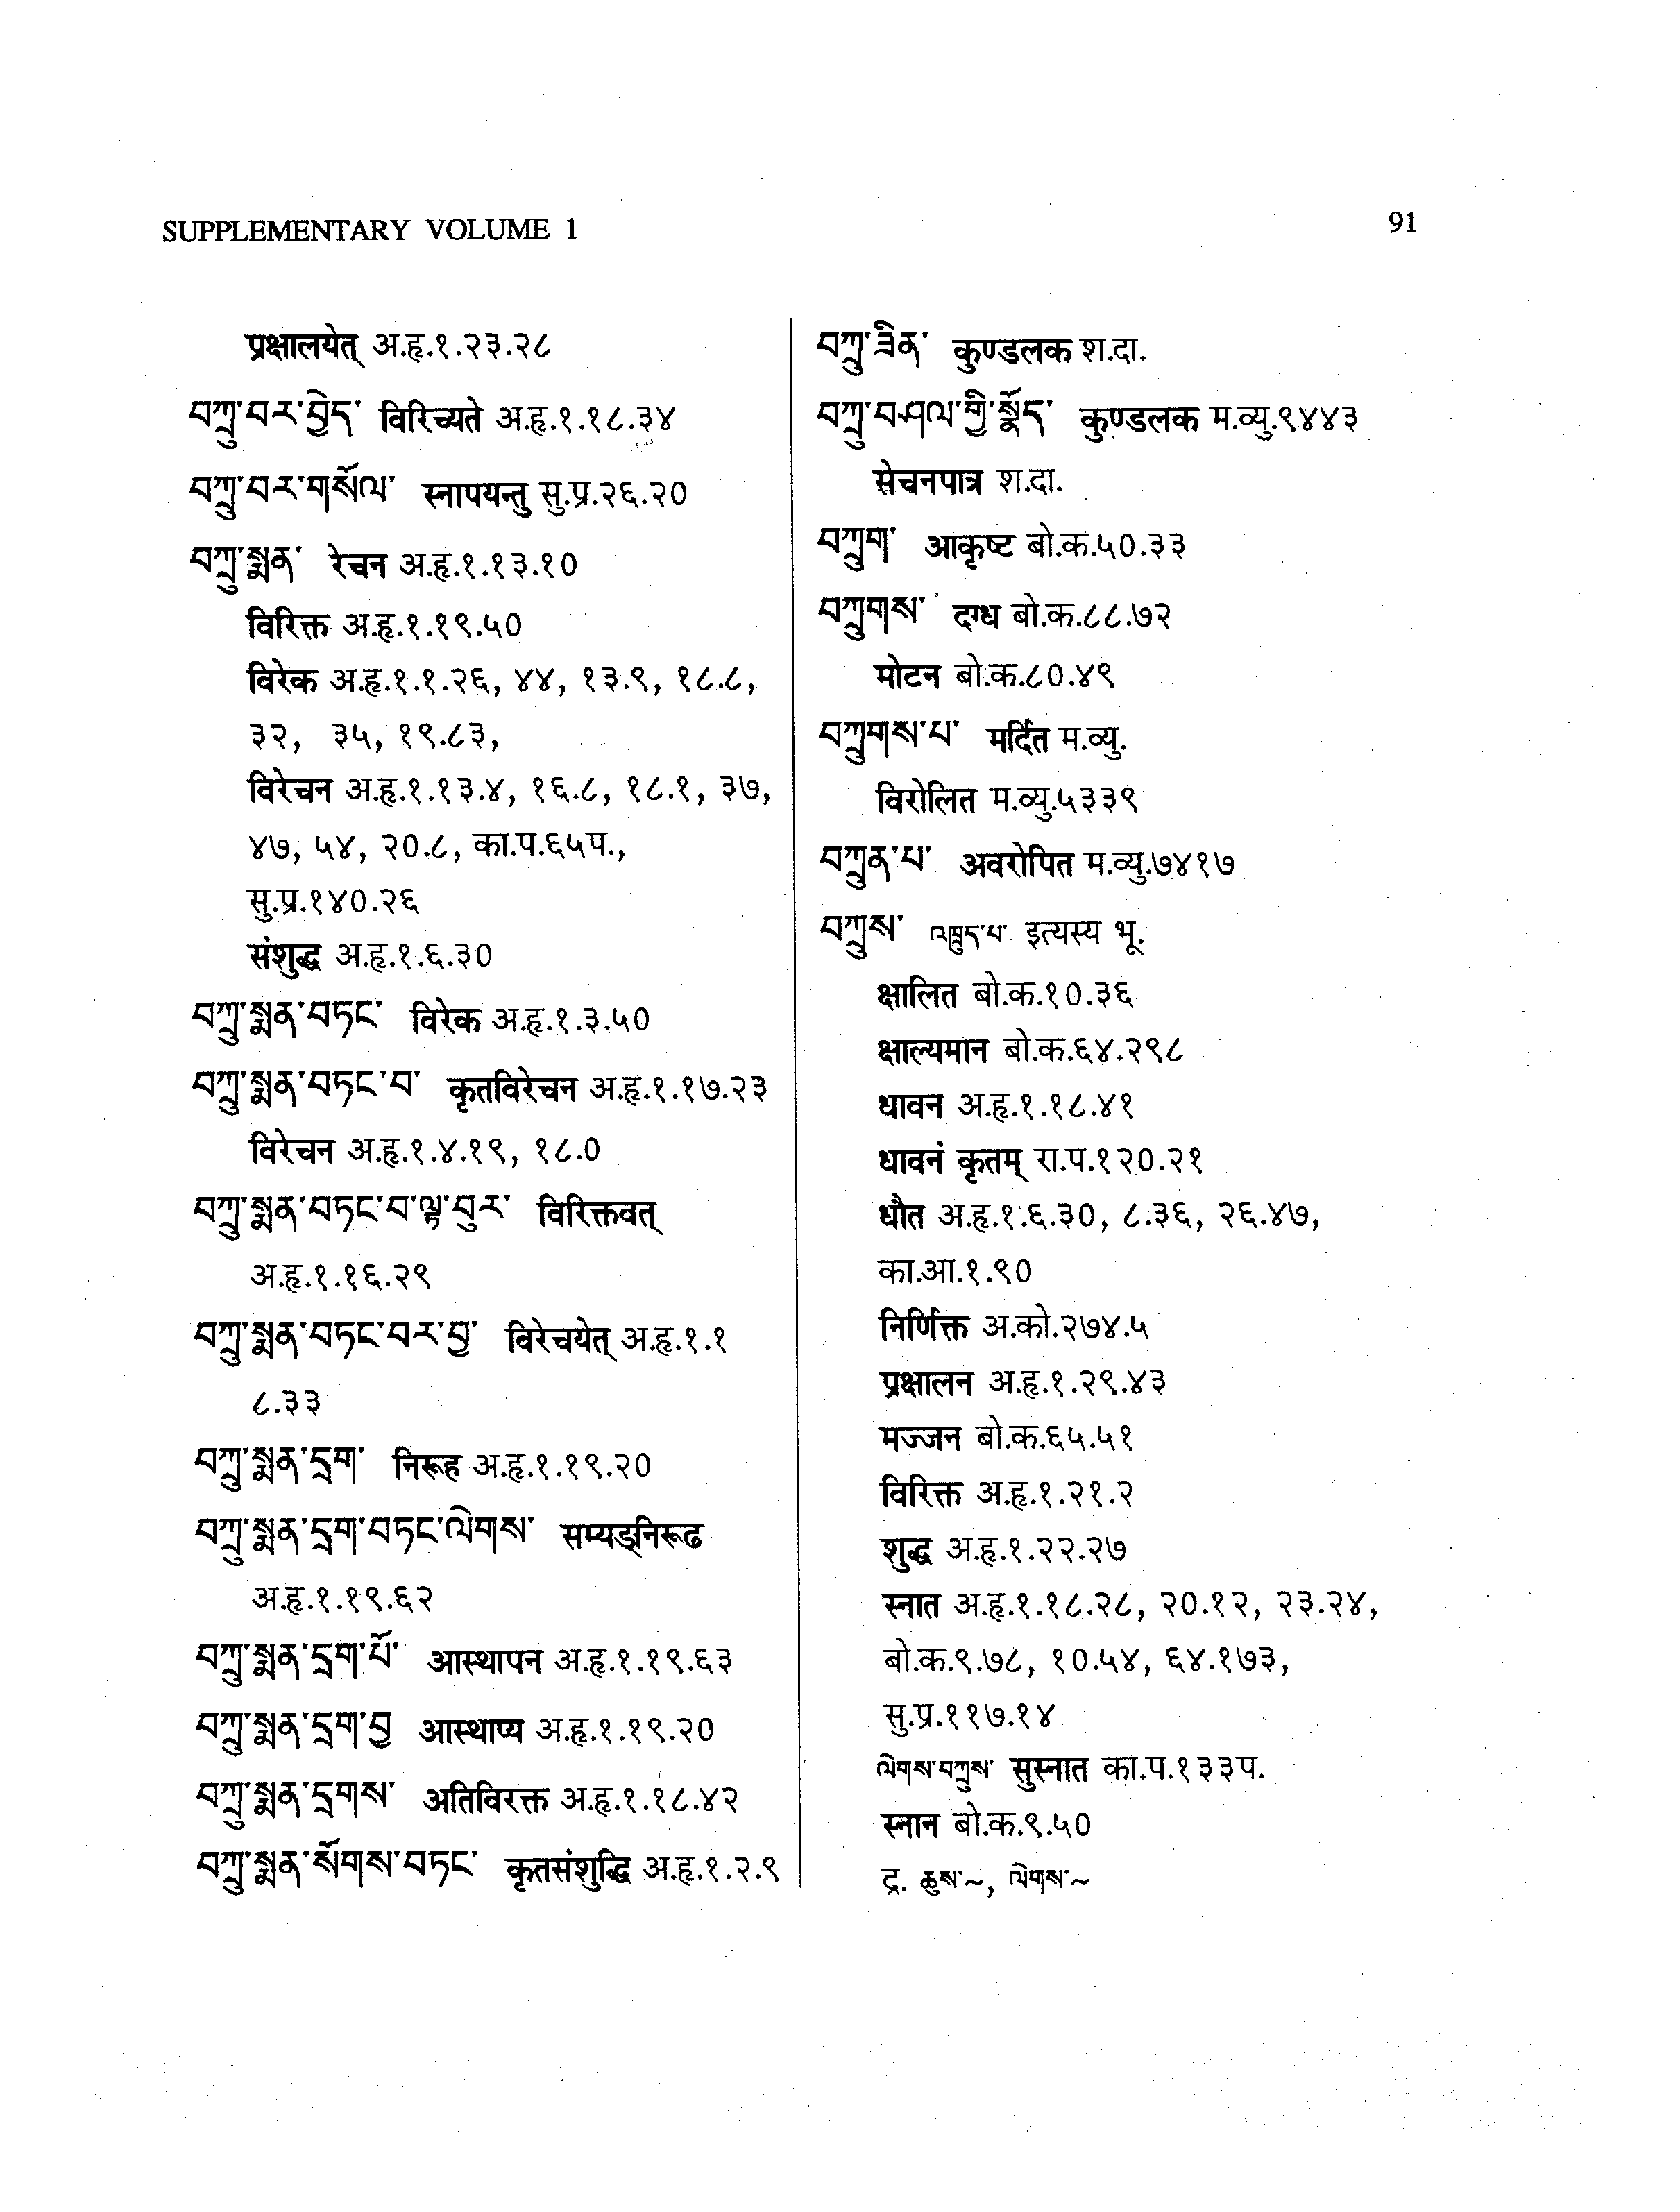 SUPPLEMENTARY VOLUME 1
91
प्रक्षालयेत् अ.हृ.१.२३.२८
བཀྲུ་བར་བྱེད་ विरिच्यते अ.हृ.१.१८.३४
བཀྲུ་བར་གསོལ་ स्नापयन्तु सु.प्र.२६.२०
བཀྲུ་སྨན་ रेचन अ.हृ.१.१३.१०
विरिक्त अ.हृ.१.१९.५०
विरेक अ.हृ.१.१.२६, ४४, १३.९, १८.८,
३२, ३५, १९.८३,
विरेचन अ.हृ.१.१३.४, १६.८, १८.१, ३७,
४७, ५४, २०.८, का.प.६५प.,
सु.प्र.१४०.२६
संशुद्ध अ.हृ.१.६.३०
བཀྲུ་སྨན་བཏང་ विरेक अ.हृ.१.३.५०
བཀྲུ་སྨན་བཏང་བ་ कृतविरेचन अ.हृ.१.१७.२३
विरेचन अ.हृ.१.४.१९, १८.०
བཀྲུ་སྨན་བཏང་བ་ལྟ་བུར་ विरिक्तवत्
अ.हृ.१.१६.२९
བཀྲུ་སྨན་བཏང་བར་བྱ་ विरेचयेत् अ.हृ.१.१
८.३३
བཀྲུ་སྨན་དྲག་ निरूह अ.हृ.१.१९.२०
བཀྲུ་སྨན་དྲག་བཏང་ལེགས་ सम्यङ्निरूढ
अ.हृ.१.१९.६२
བཀྲུ་སྨན་དྲག་པོ་ आस्थापन अ.हृ.१.१९.६३
བཀྲུ་སྨན་དྲག་བྱ आस्थाप्य अ.हृ.१.१९.२०
བཀྲུ་སྨན་དྲགས་ अतिविरक्त अ.हृ.१.१८.४२
བཀྲུ་སྨན་སོགས་བཏང་ कृतसंशुद्धि अ.हृ.१.२.९
བཀྲུ་ཟིན་ कुण्डलक श.दा.
བཀྲུ་བཤལ་གྱི་སྣོད་ कुण्डलक म.व्यु.९४४३
सेचनपात्र श.दा.
བཀྲུག་ आकृष्ट बो.क.५०.३३
བཀྲུགས་ दग्ध बो.क.८८.७२
मोटन बो.क.८०.४९
བཀྲུགས་པ་ मर्दित म.व्यु.
विरोलित म.व्यु.५३३९
བཀྲུན་པ་ अवरोपित म.व्यु.७४१७
བཀྲུས་ འཁྲུད་པ་ इत्यस्य भू.
क्षालित बो.क.१०.३६
क्षाल्यमान बो.क.६४.२९८
धावन अ.हृ.१.१८.४१
धावनं कृतम् रा.प.१२०.२१
धौत अ.हृ.१.६.३०, ८.३६, २६.४७,
का.आ.१.९०
निर्णिक्त अ.को.२७४.५
प्रक्षालन अ.हृ.१.२९.४३
मज्जन बो.क.६५.५१
विरिक्त अ.हृ.१.२१.२
शुद्ध अ.हृ.१.२२.२७
स्नात अ.हृ.१.१८.२८, २०.१२, २३.२४,
बो.क.९.७८, १०.५४, ६४.१७३,
सु.प्र.११७.१४
ལེགས་བཀྲུས་ सुस्नात का.प.१३३प.
स्नान बो.क.९.५०
द्र. ཆུས་~, ལེགས་~